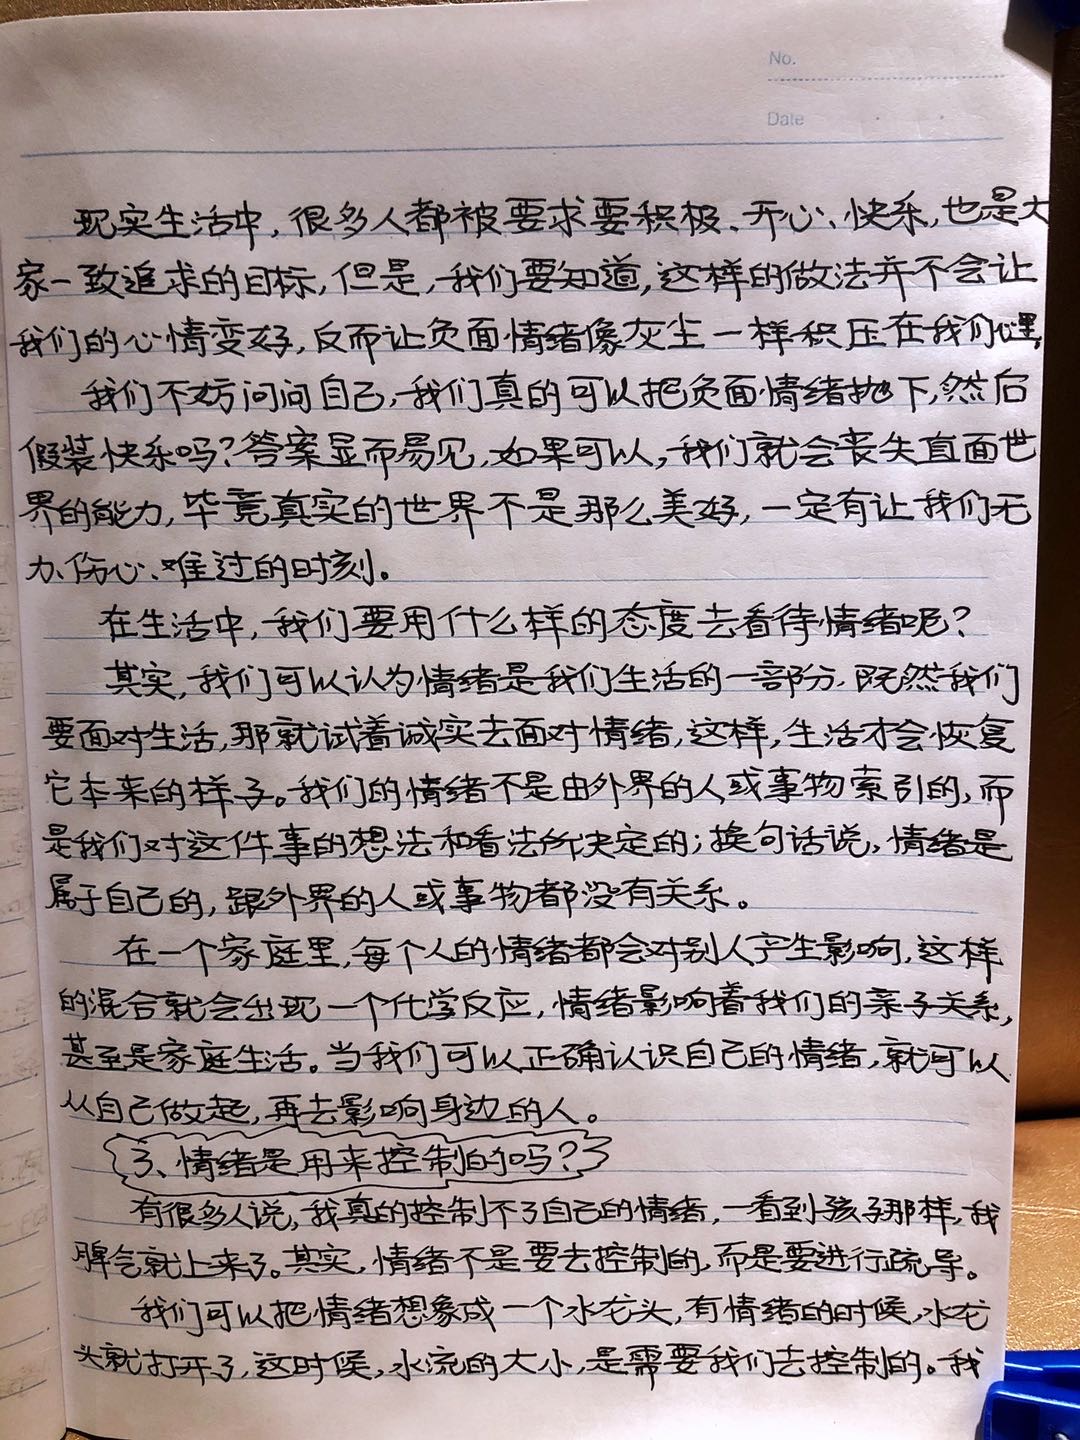 No.
Date
现实生活中,很多人都被要求要积极、开心、快乐,也是大
家一致追求的目标,但是,我们要知道,这样的做法并不会让
我们的心情变好,反而让负面情绪像灰尘一样积压在我们心里。
我们不妨问问自己,我们真的可以把负面情绪抛下,然后
假装快乐吗?答案显而易见,如果可以,我们就会丧失直面世
界的能力,毕竟真实的世界不是那么美好,一定有让我们无
力、伤心、难过的时刻。
在生活中,我们要用什么样的态度去看待情绪呢?
其实,我们可以认为情绪是我们生活的一部分,既然我们
要面对生活,那就试着诚实去面对情绪,这样,生活才会恢复
它本来的样子。我们的情绪不是由外界的人或事物索引的,而
是我们对这件事的想法和看法所决定的;换句话说,情绪是
属于自己的,跟外界的人或事物都没有关系。
在一个家庭里,每个人的情绪都会对别人产生影响,这样
的混合就会出现一个化学反应,情绪影响着我们的亲子关系,
甚至是家庭生活。当我们可以正确认识自己的情绪,就可以
从自己做起,再去影响身边的人。
3、情绪是用来控制的吗?
有很多人说,我真的控制不了自己的情绪,一看到孩子那样,我
脾气就上来了。其实,情绪不是要去控制的,而是要进行疏导。
我们可以把情绪想象成一个水龙头,有情绪的时候,水龙
头就打开了,这时候,水流的大小,是需要我们去控制的。我